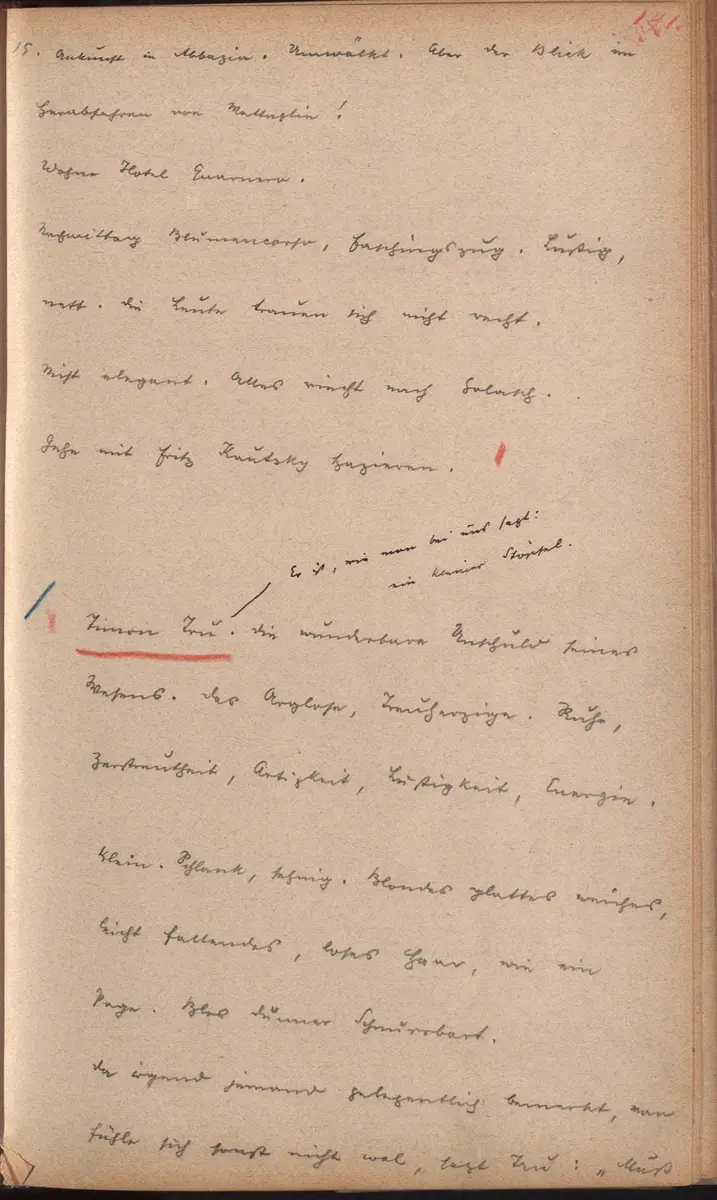 141.
15. Ankunft in Abbazia. Umwölkt. Aber der Blick im
Herabfahren von Mattuglie!
Wohne Hotel Quarnero.
Nachmittag Blumencorso, Faschingszug. Lustig,
nett. Die Leute trauen sich nicht recht.
Nicht elegant. Alles riecht nach Golasch.
Gehe mit Fritz Kautzky spazieren.
Er ist, wie man bei uns sagt:
ein kleiner Stöpsel.
Timon Tru. Die wunderbare Unschuld seines
Wesens. Das Arglose, Treuherzige. Ruhe,
Zerstreutheit, Artigkeit, Lustigkeit, Energie.
Klein. Schlank, sehnig. Blondes glattes weiches,
leicht fallendes, loses Haar, wie ein
Page. dünner Schnurrbart.
Da irgend jemand gelegentlich bemerkt, man
fühle sich sonst nicht wol, sagt Tru: „Muß